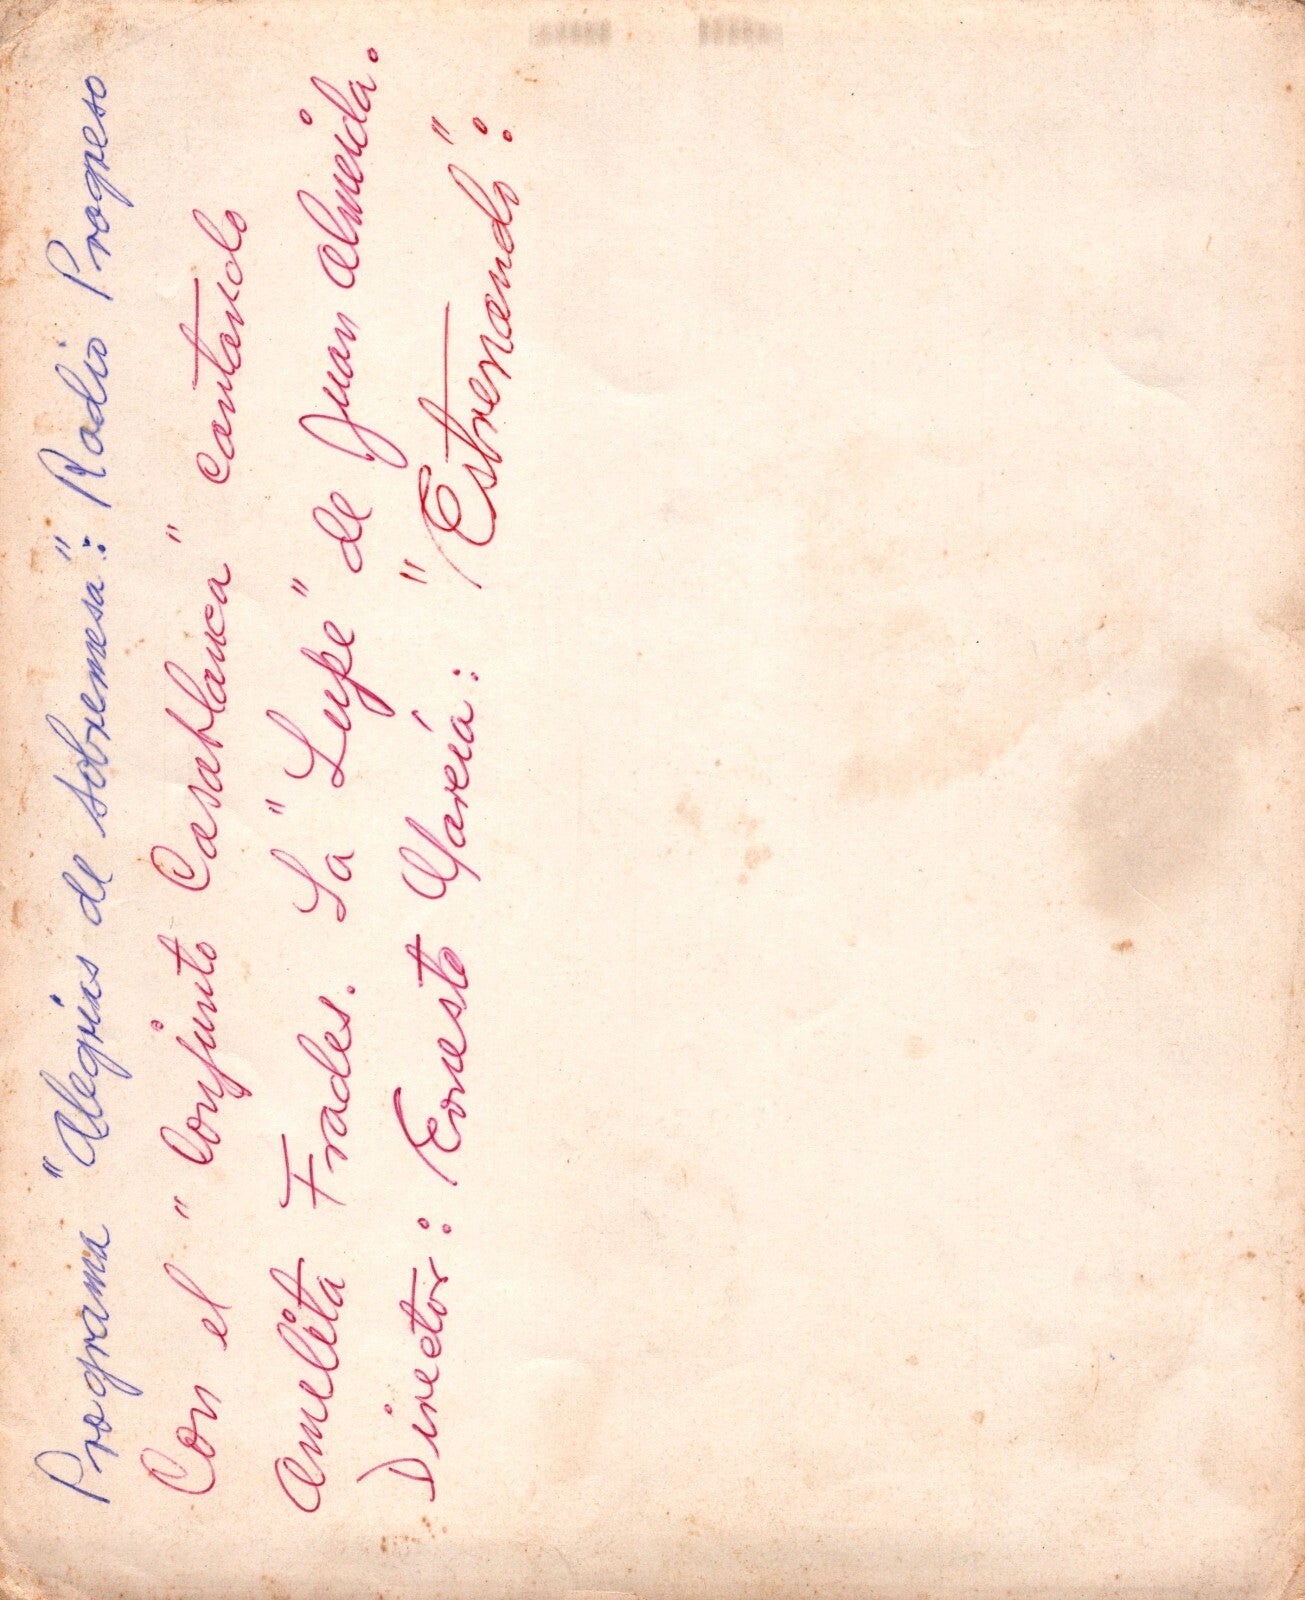 Programa "Alegrías de sobremesa": Radio Progreso
Con el "Conjunto Casablanca" cantando
Amelita Frades. La "Lupe" de Juan Almeida.
Director: Ernesto García: "Estrenando":